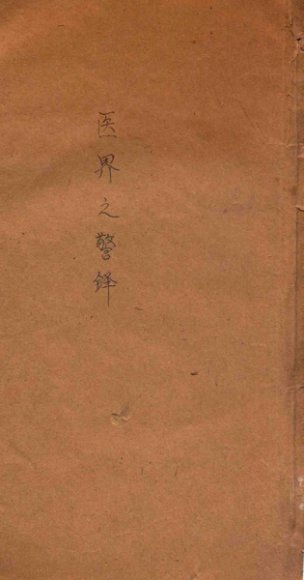 医界之警铎